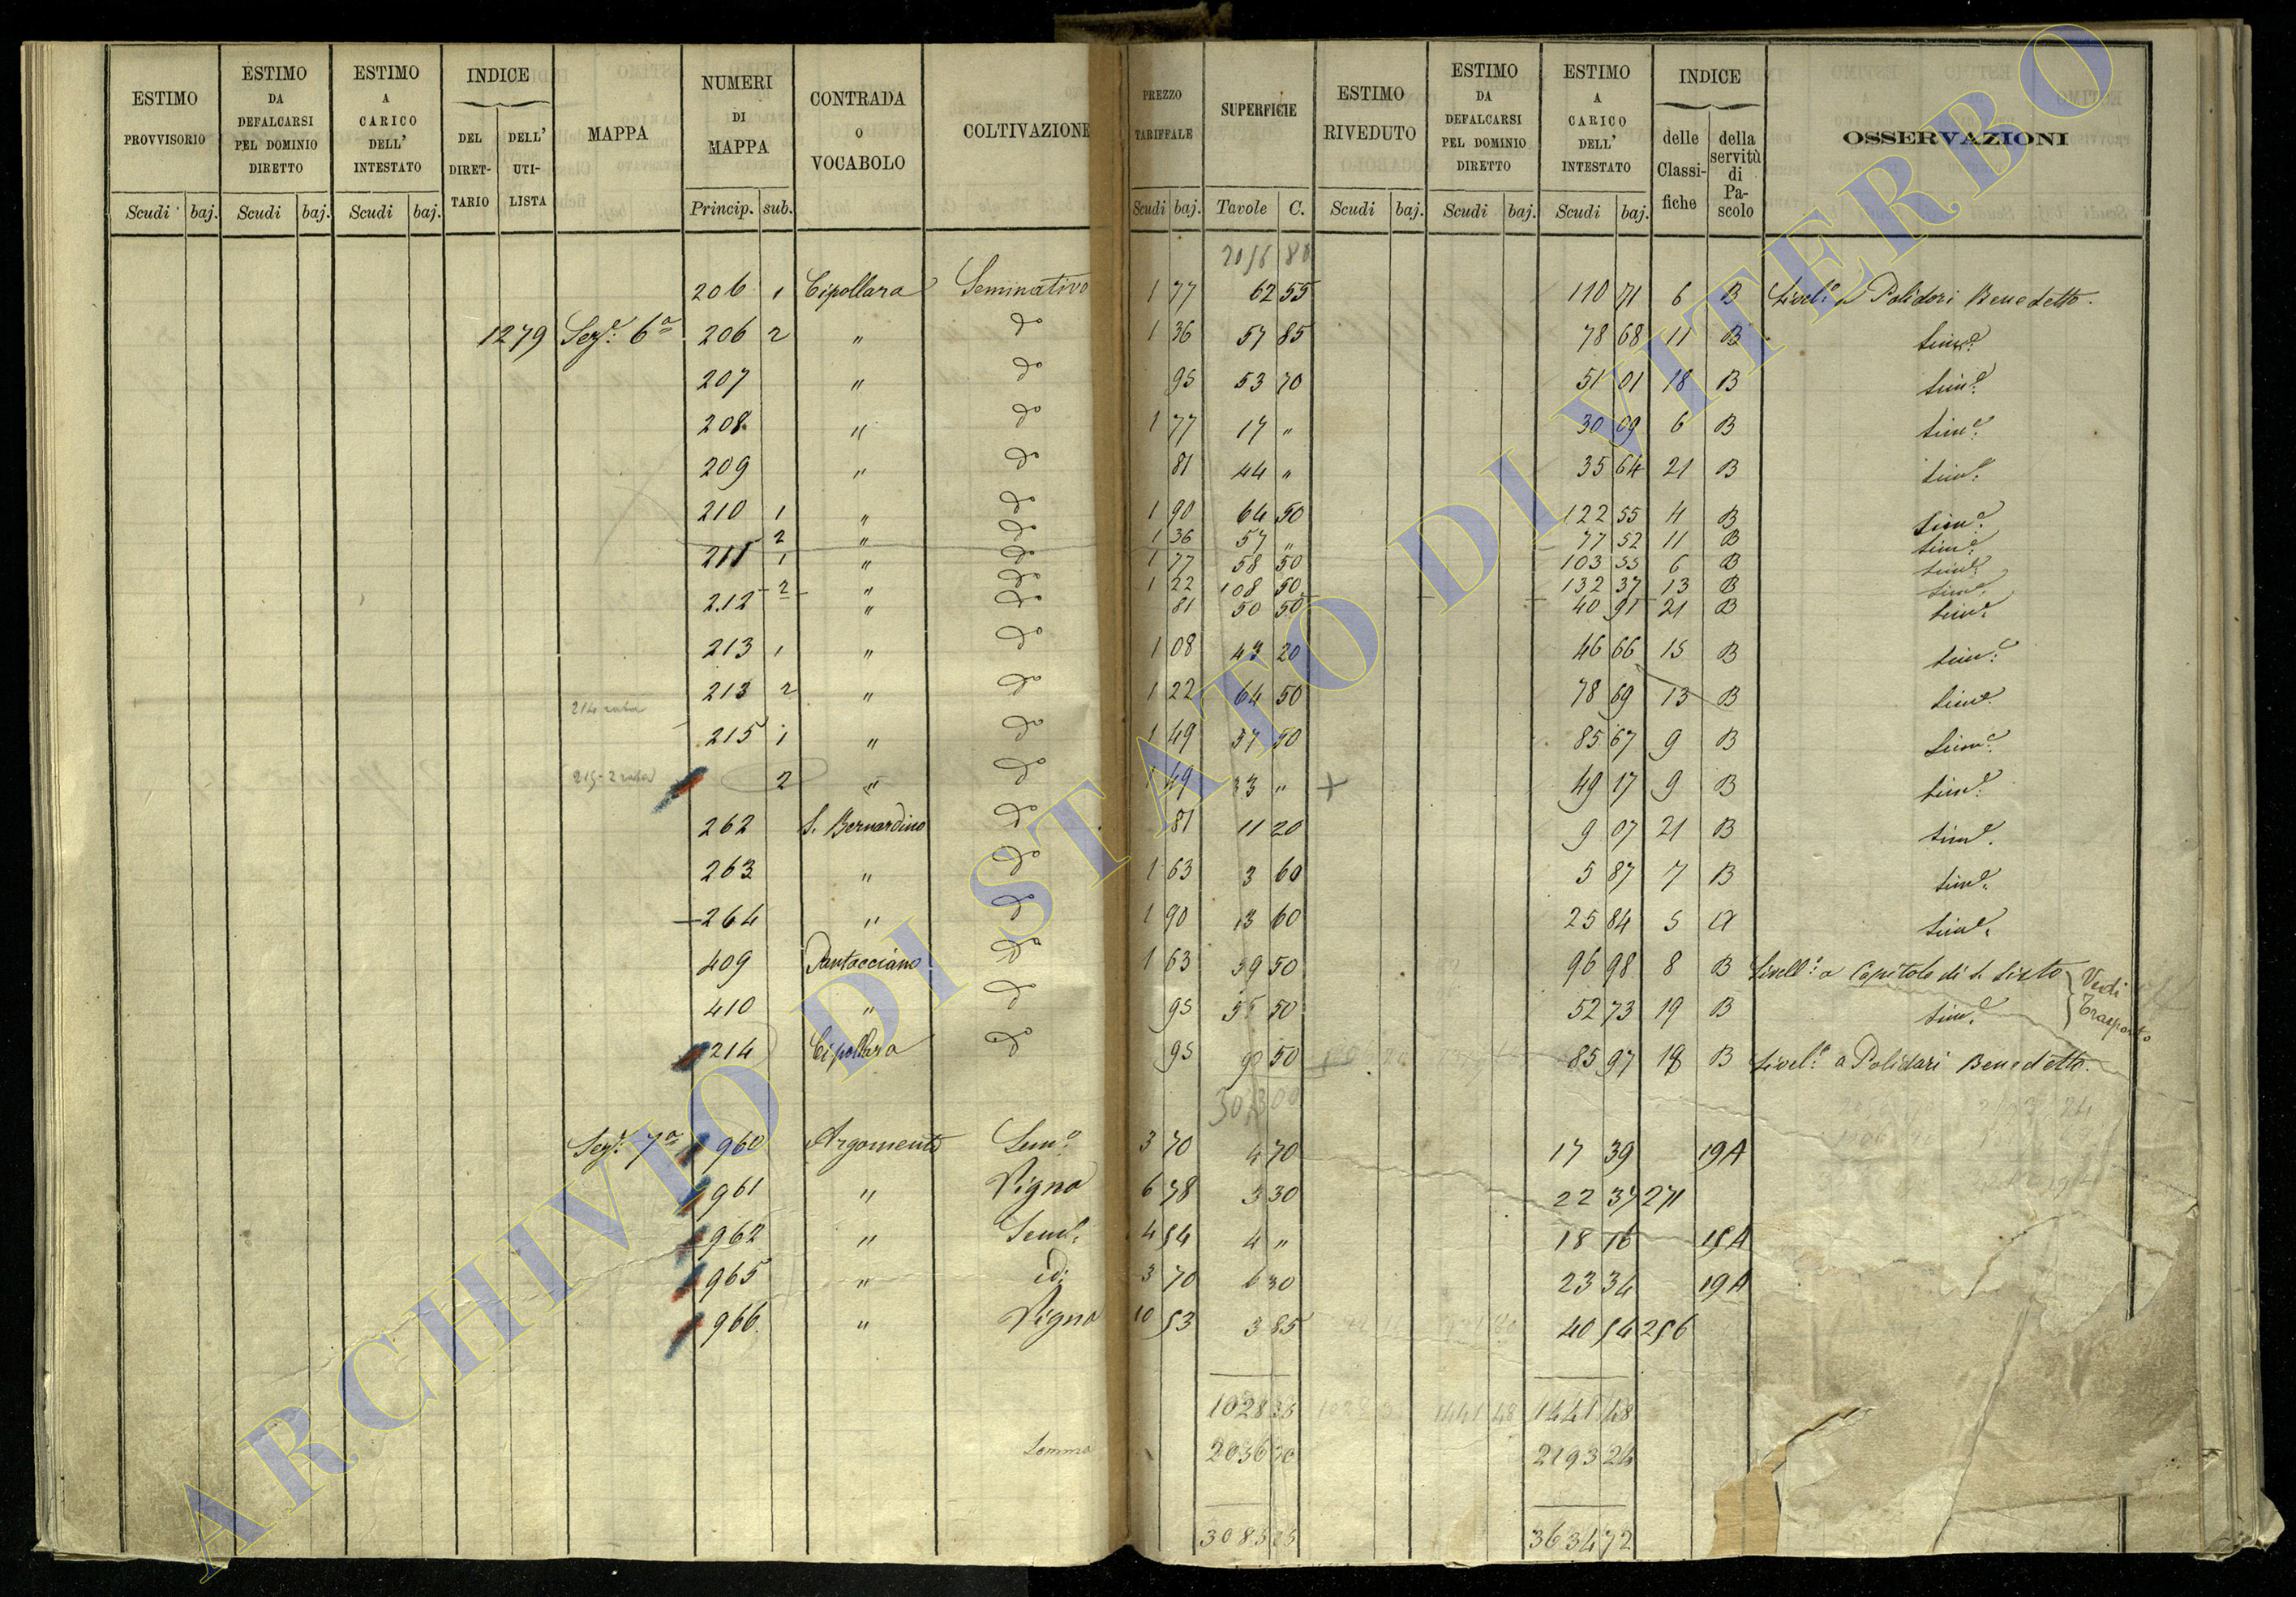 ESTIMO PROVVISORIO | ESTIMO DA DEFALCARSI PEL DOMINIO DIRETTO | ESTIMO A CARICO DELL' INTESTATO | INDICE DEL DIRETTARIO | DELL' UTILISTA | MAPPA | NUMERI DI MAPPA | CONTRADA O VOCABOLO | COLTIVAZIONE | PREZZO TARIFFALE | SUPERFICIE | ESTIMO RIVEDUTO | ESTIMO DA DEFALCARSI PEL DOMINIO DIRETTO | ESTIMO A CARICO DELL' INTESTATO | INDICE delle Classifiche | della servitù di Pascolo | OSSERVAZIONI
Scudi baj. Scudi baj. Scudi baj. Princip. sub. Scudi baj. Tavole C. Scudi baj. Scudi baj. Scudi baj.
206 1 Cipollara Seminativo 1 77 62 55 110 71 6 B Livel.º a Polidori Benedetto.
1279 Sez.e 6a 206 2 " do 1 36 57 85 78 68 11 B Sim.e
207 " do 95 53 70 51 01 18 B Sim.e
208 " do 1 77 17 " 30 09 6 B Sim.e
209 " do 81 44 " 35 64 21 B Sim.e
210 1 " do 1 90 64 50 122 55 4 B Sim.e
2 " do 1 36 57 " 77 52 11 B Sim.e
211 1 " do 1 77 58 50 103 55 6 B Sim.e
2 " do 1 22 108 50 132 37 13 B Sim.e
212 " do 81 50 50 40 91 21 B Sim.e
213 1 " do 1 08 43 20 46 66 15 B Sim.e
213 2 " do 1 22 64 50 78 69 13 B Sim.e
214
215 1 " do 1 49 57 50 85 67 9 B Sim.e
215-2
2 " do 1 49 33 " + 49 17 9 B Sim.e
262 S. Bernardino do 81 11 20 9 07 21 B Sim.e
263 " do 1 63 3 60 5 87 7 B Sim.e
264 " do 1 90 13 60 25 84 5 A Sim.e
409 Pantacciano do 1 63 59 50 96 98 8 B Livell.º a Capitolo di S. Sisto } Vedi
410 " do 95 55 50 52 73 19 B Sim.e } Trasporto
214 Cipollara do 95 90 50 85 97 18 B Livel.º a Polidori Benedetto.
Sez.e 7a 960 Argomento Sem.o 3 70 4 70 17 39 19A
961 " Vigna 6 78 3 30 22 37 271
962 " Sem.o 4 54 4 " 18 16 15A
965 " id: 3 70 6 30 23 34 19A
966 " Vigna 10 53 3 85 40 54 256
1441 48
Somma 2193 24
3634 72
ARCHIVIO DI STATO DI VITERBO